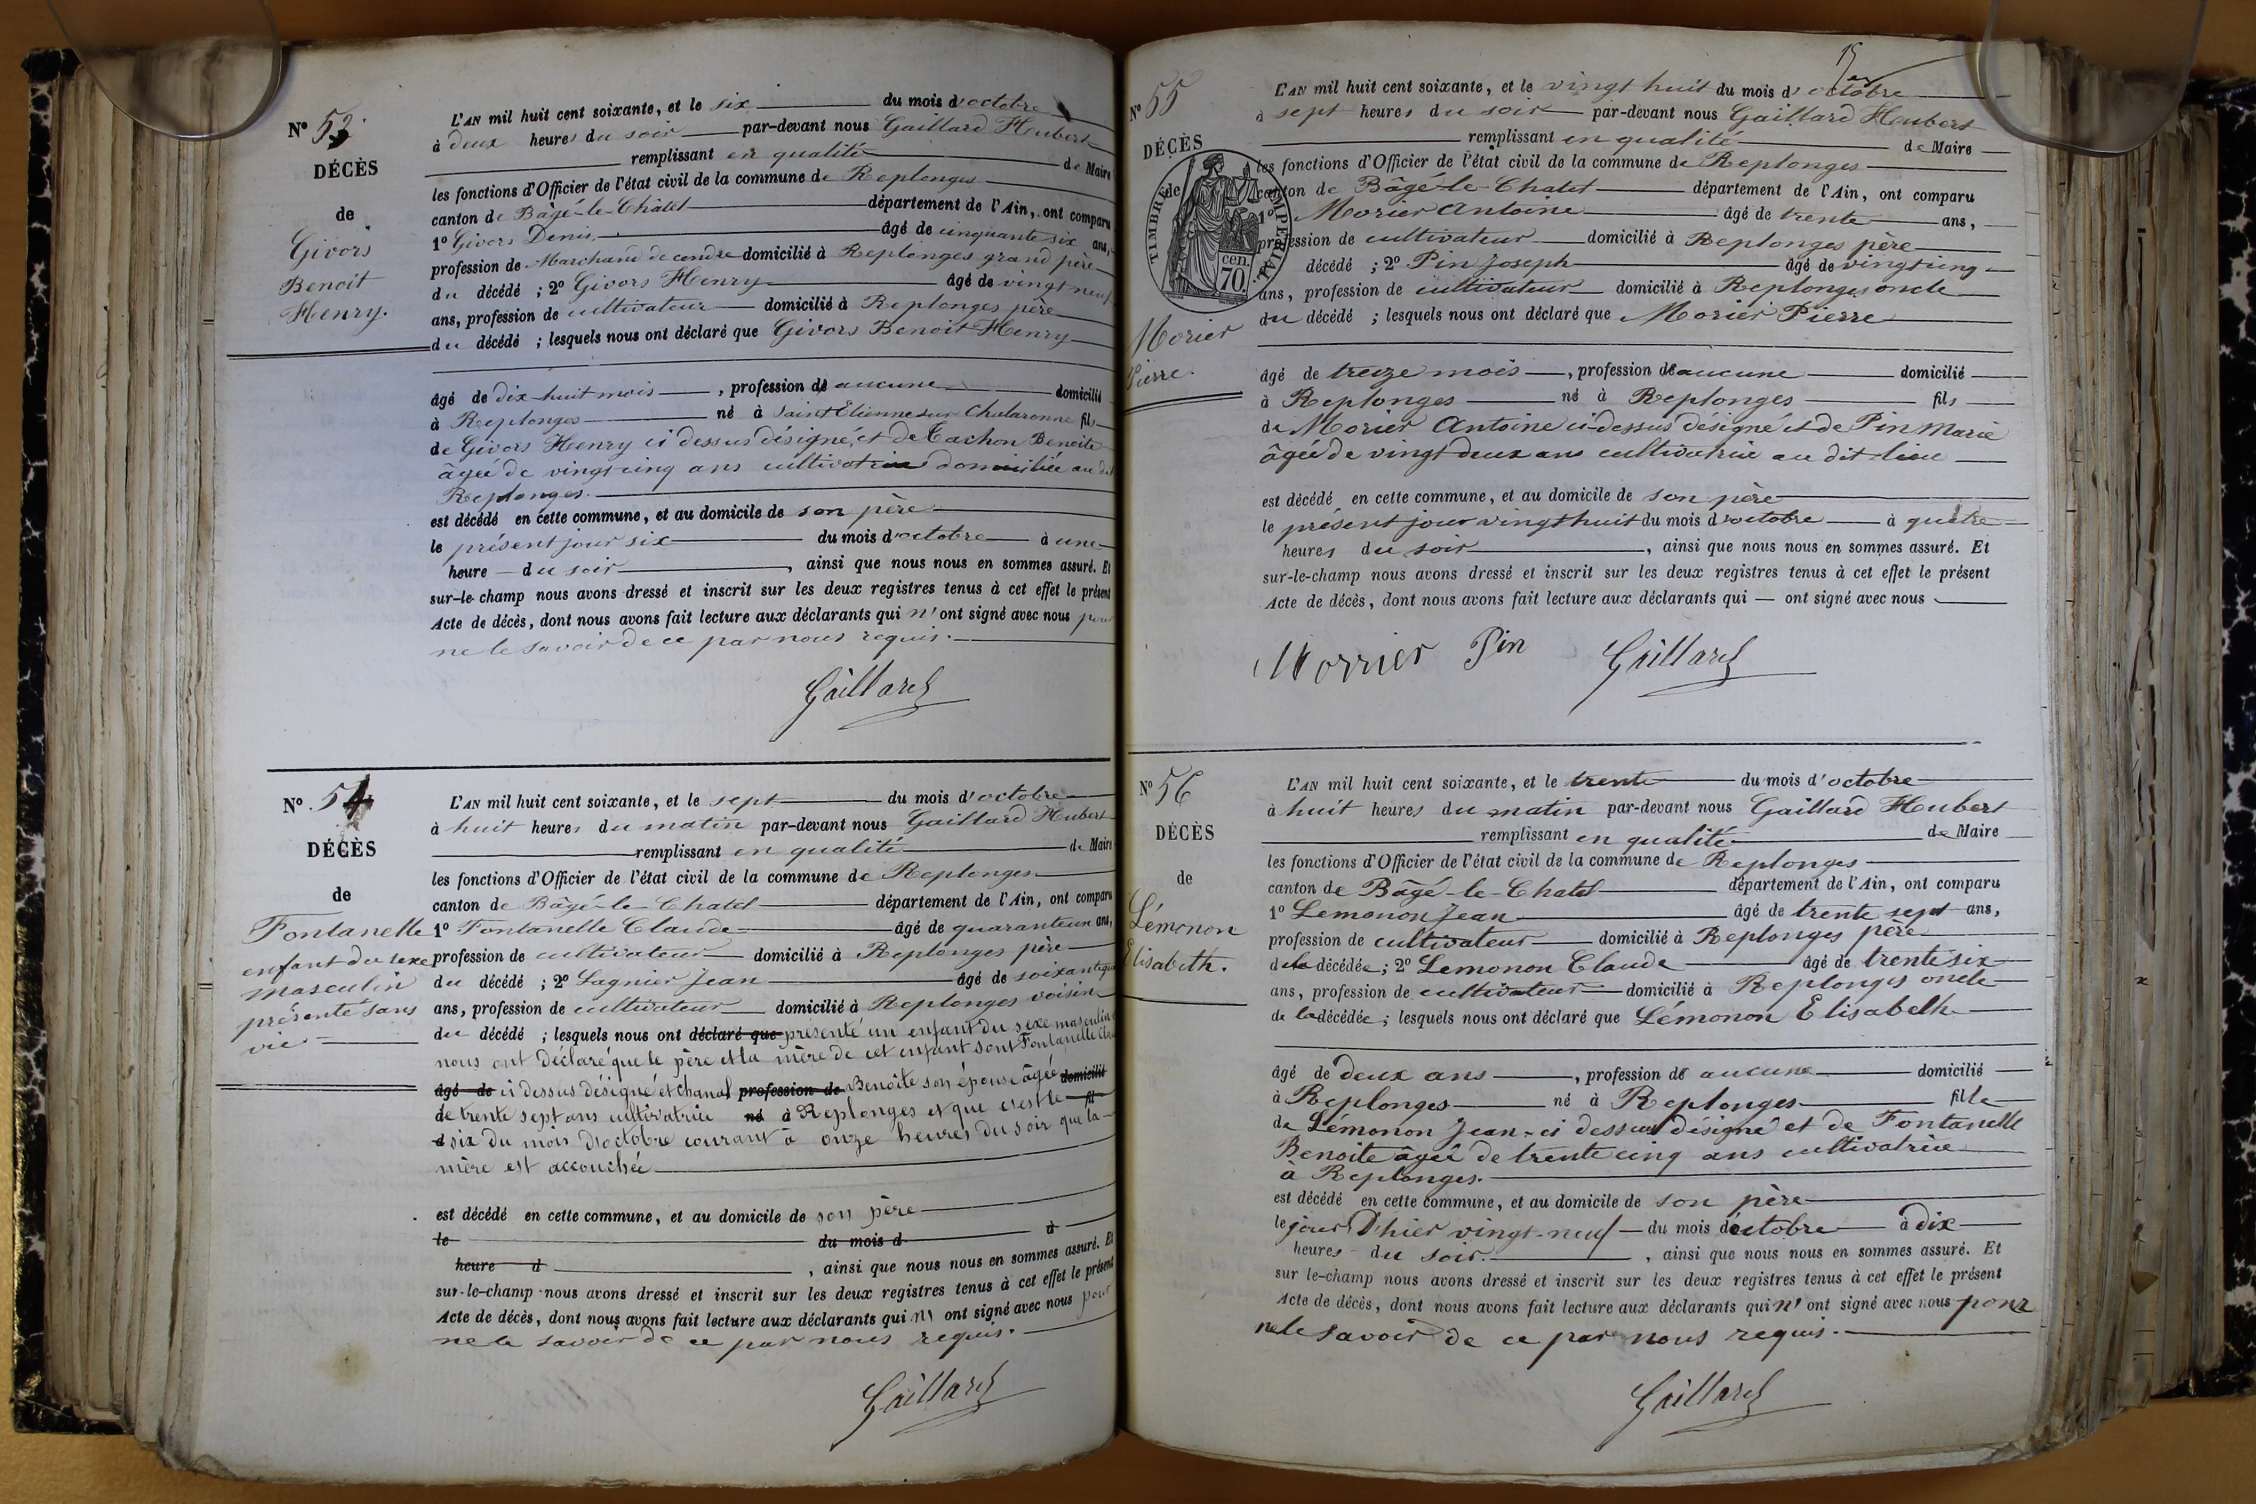 N° 53
DÉCÈS
de
Givors
Benoit
Henry.
L'AN mil huit cent soixante, et le six du mois d'octobre
à deux heures du soir par-devant nous Gaillard Hubert
remplissant en qualité de Maire
les fonctions d'Officier de l'état civil de la commune de Replonges
canton de Bâgé-le-Châtel département de l'Ain, ont comparu
1° Givors Denis âgé de cinquante six ans,
profession de Marchand de cendre domicilié à Replonges grand père
du décédé ; 2° Givors Henry âgé de vingt neuf
ans, profession de cultivateur domicilié à Replonges père
du décédé ; lesquels nous ont déclaré que Givors Benoit Henry
âgé de dix-huit mois , profession de aucune domicilié
à Replonges né à Saint Etienne sur Chalaronne fils
de Givors Henry ci dessus désigné, et de Tachon Benoite
âgée de vingt cinq ans cultivatrice domiciliée au dit
Replonges.
est décédé en cette commune, et au domicile de son père
le présent jour six du mois d'octobre à une
heure du soir , ainsi que nous nous en sommes assuré. Et
sur-le-champ nous avons dressé et inscrit sur les deux registres tenus à cet effet le présent
Acte de décès, dont nous avons fait lecture aux déclarants qui n'ont signé avec nous pour
ne le savoir de ce par nous requis.
Gaillard
N° 54
DÉCÈS
de
Fontanelle
enfant du sexe
masculin
présenté sans
vie
L'AN mil huit cent soixante, et le sept du mois d'octobre
à huit heures du matin par-devant nous Gaillard Hubert
remplissant en qualité de Maire
les fonctions d'Officier de l'état civil de la commune de Replonges
canton de Bâgé-le-Chatel département de l'Ain, ont comparu
1° Fontanelle Claude âgé de quarante un ans,
profession de cultivateur domicilié à Replonges père
du décédé ; 2° Lagnier Jean âgé de soixante
ans, profession de cultivateur domicilié à Replonges voisin
du décédé ; lesquels nous ont déclaré que présenté un enfant du sexe masculin
nous ont déclaré que le père et la mère de cet enfant sont Fontanelle
âgé de ci dessus désigné et Chanal profession de Benoite son épouse âgée domicilié
de trente sept ans cultivatrice né à Replonges et que c'est le fil
d six du mois d'octobre courant à onze heures du soir que la
mère est accouchée
est décédé en cette commune, et au domicile de son père
le du mois d à
heure d , ainsi que nous nous en sommes assuré. Et
sur-le-champ nous avons dressé et inscrit sur les deux registres tenus à cet effet le présent
Acte de décès, dont nous avons fait lecture aux déclarants qui n'ont signé avec nous pour
ne le savoir de ce par nous requis.
Gaillard
N° 55
DÉCÈS
TIMBRE IMPERIAL
70 cen.
Morier
Pierre.
L'AN mil huit cent soixante, et le vingt huit du mois d'octobre
à sept heures du soir par-devant nous Gaillard Hubert
remplissant en qualité de Maire
les fonctions d'Officier de l'état civil de la commune de Replonges
canton de Bâgé-le-Chatel département de l'Ain, ont comparu
1° Morier Antoine âgé de trente ans,
profession de cultivateur domicilié à Replonges père
décédé ; 2° Pin Joseph âgé de vingt cinq
ans, profession de cultivateur domicilié à Replonges oncle
du décédé ; lesquels nous ont déclaré que Morier Pierre
âgé de treize mois , profession de aucune domicilié
à Replonges né à Replonges fils
de Morier Antoine ci-dessus désigné et de Pin Marie
âgée de vingt deux ans cultivatrice au dit lieu
est décédé en cette commune, et au domicile de son père
le présent jour vingt huit du mois d'octobre à quatre
heures du soir , ainsi que nous nous en sommes assuré. Et
sur-le-champ nous avons dressé et inscrit sur les deux registres tenus à cet effet le présent
Acte de décès, dont nous avons fait lecture aux déclarants qui — ont signé avec nous
Morrier Pin Gaillard
N° 56
DÉCÈS
de
Lémonon
Elisabeth.
L'AN mil huit cent soixante, et le trente du mois d'octobre
à huit heures du matin par-devant nous Gaillard Hubert
remplissant en qualité de Maire
les fonctions d'Officier de l'état civil de la commune de Replonges
canton de Bâgé-le-Chatel département de l'Ain, ont comparu
1° Lemonon Jean âgé de trente sept ans,
profession de cultivateur domicilié à Replonges père
de la décédée ; 2° Lemonon Claude âgé de trente six
ans, profession de cultivateur domicilié à Replonges oncle
de la décédée ; lesquels nous ont déclaré que Lémonon Elisabeth
âgé de deux ans , profession de aucune domicilié
à Replonges né à Replonges fille
de Lémonon Jean ci dessus désigné et de Fontanelle
Benoite âgée de trente cinq ans cultivatrice
à Replonges.
est décédé en cette commune, et au domicile de son père
le jour D'hier vingt-neuf du mois d'octobre à dix
heures du soir. , ainsi que nous nous en sommes assuré. Et
sur le-champ nous avons dressé et inscrit sur les deux registres tenus à cet effet le présent
Acte de décès, dont nous avons fait lecture aux déclarants qui n'ont signé avec nous pour
ne le savoir de ce par nous requis.
Gaillard